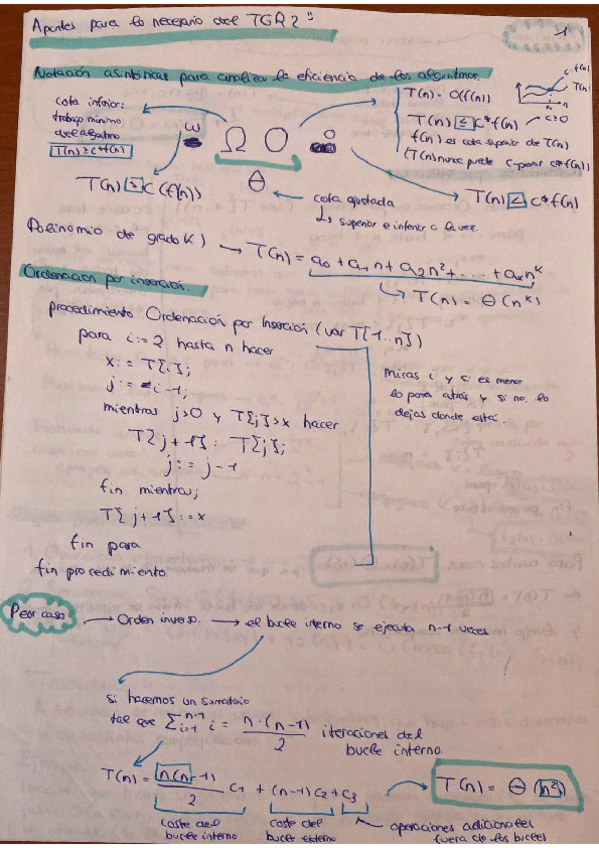 Apuntes para lo necesario del TGR 2
1
Notación asintóticas para analizar la eficiencia de los algoritmos.
cota inferior:
trabajo mínimo
del algoritmo
T(n) ≥ c*f(n)
ω Ω O o
Θ
T(n) ≥ c (f(n))
T(n) = O(f(n))
T(n) ≤ c*f(n)
c>0
f(n) es cota superior de T(n)
(T(n) nunca puede superar c*f(n))
c·f(n)
T(n)
n
cota ajustada
↳ superior e inferior a la vez.
T(n) < c*f(n)
Polinomio de grado K) → T(n) = a0 + a1 n + a2 n² + ... + ak n^k
↳ T(n) = Θ(n^k)
Ordenacion por inserción.
procedimiento Ordenación por Inserción (var T[1..n])
para i := 2 hasta n hacer
x := T[i];
j := i-1;
mientras j>0 y T[j]>x hacer
T[j+1] : T[j];
j := j-1
fin mientras;
T[j+1] := x
fin para
fin procedimiento
Miras i y si es menor
lo pones atrás y si no lo
dejas donde está.
Peor caso → Orden inverso. → el bucle interno se ejecuta n-1 veces
si hacemos un sumatorio
tal que Σ_{i=1}^{n-1} i = n·(n-1)/2 iteraciones del
bucle interno
T(n) = n(n-1)/2 c1 + (n-1)c2 + c3 → T(n) = Θ(n²)
coste del
bucle interno
coste del
bucle externo
operaciones adicionales
fuera de los bucles